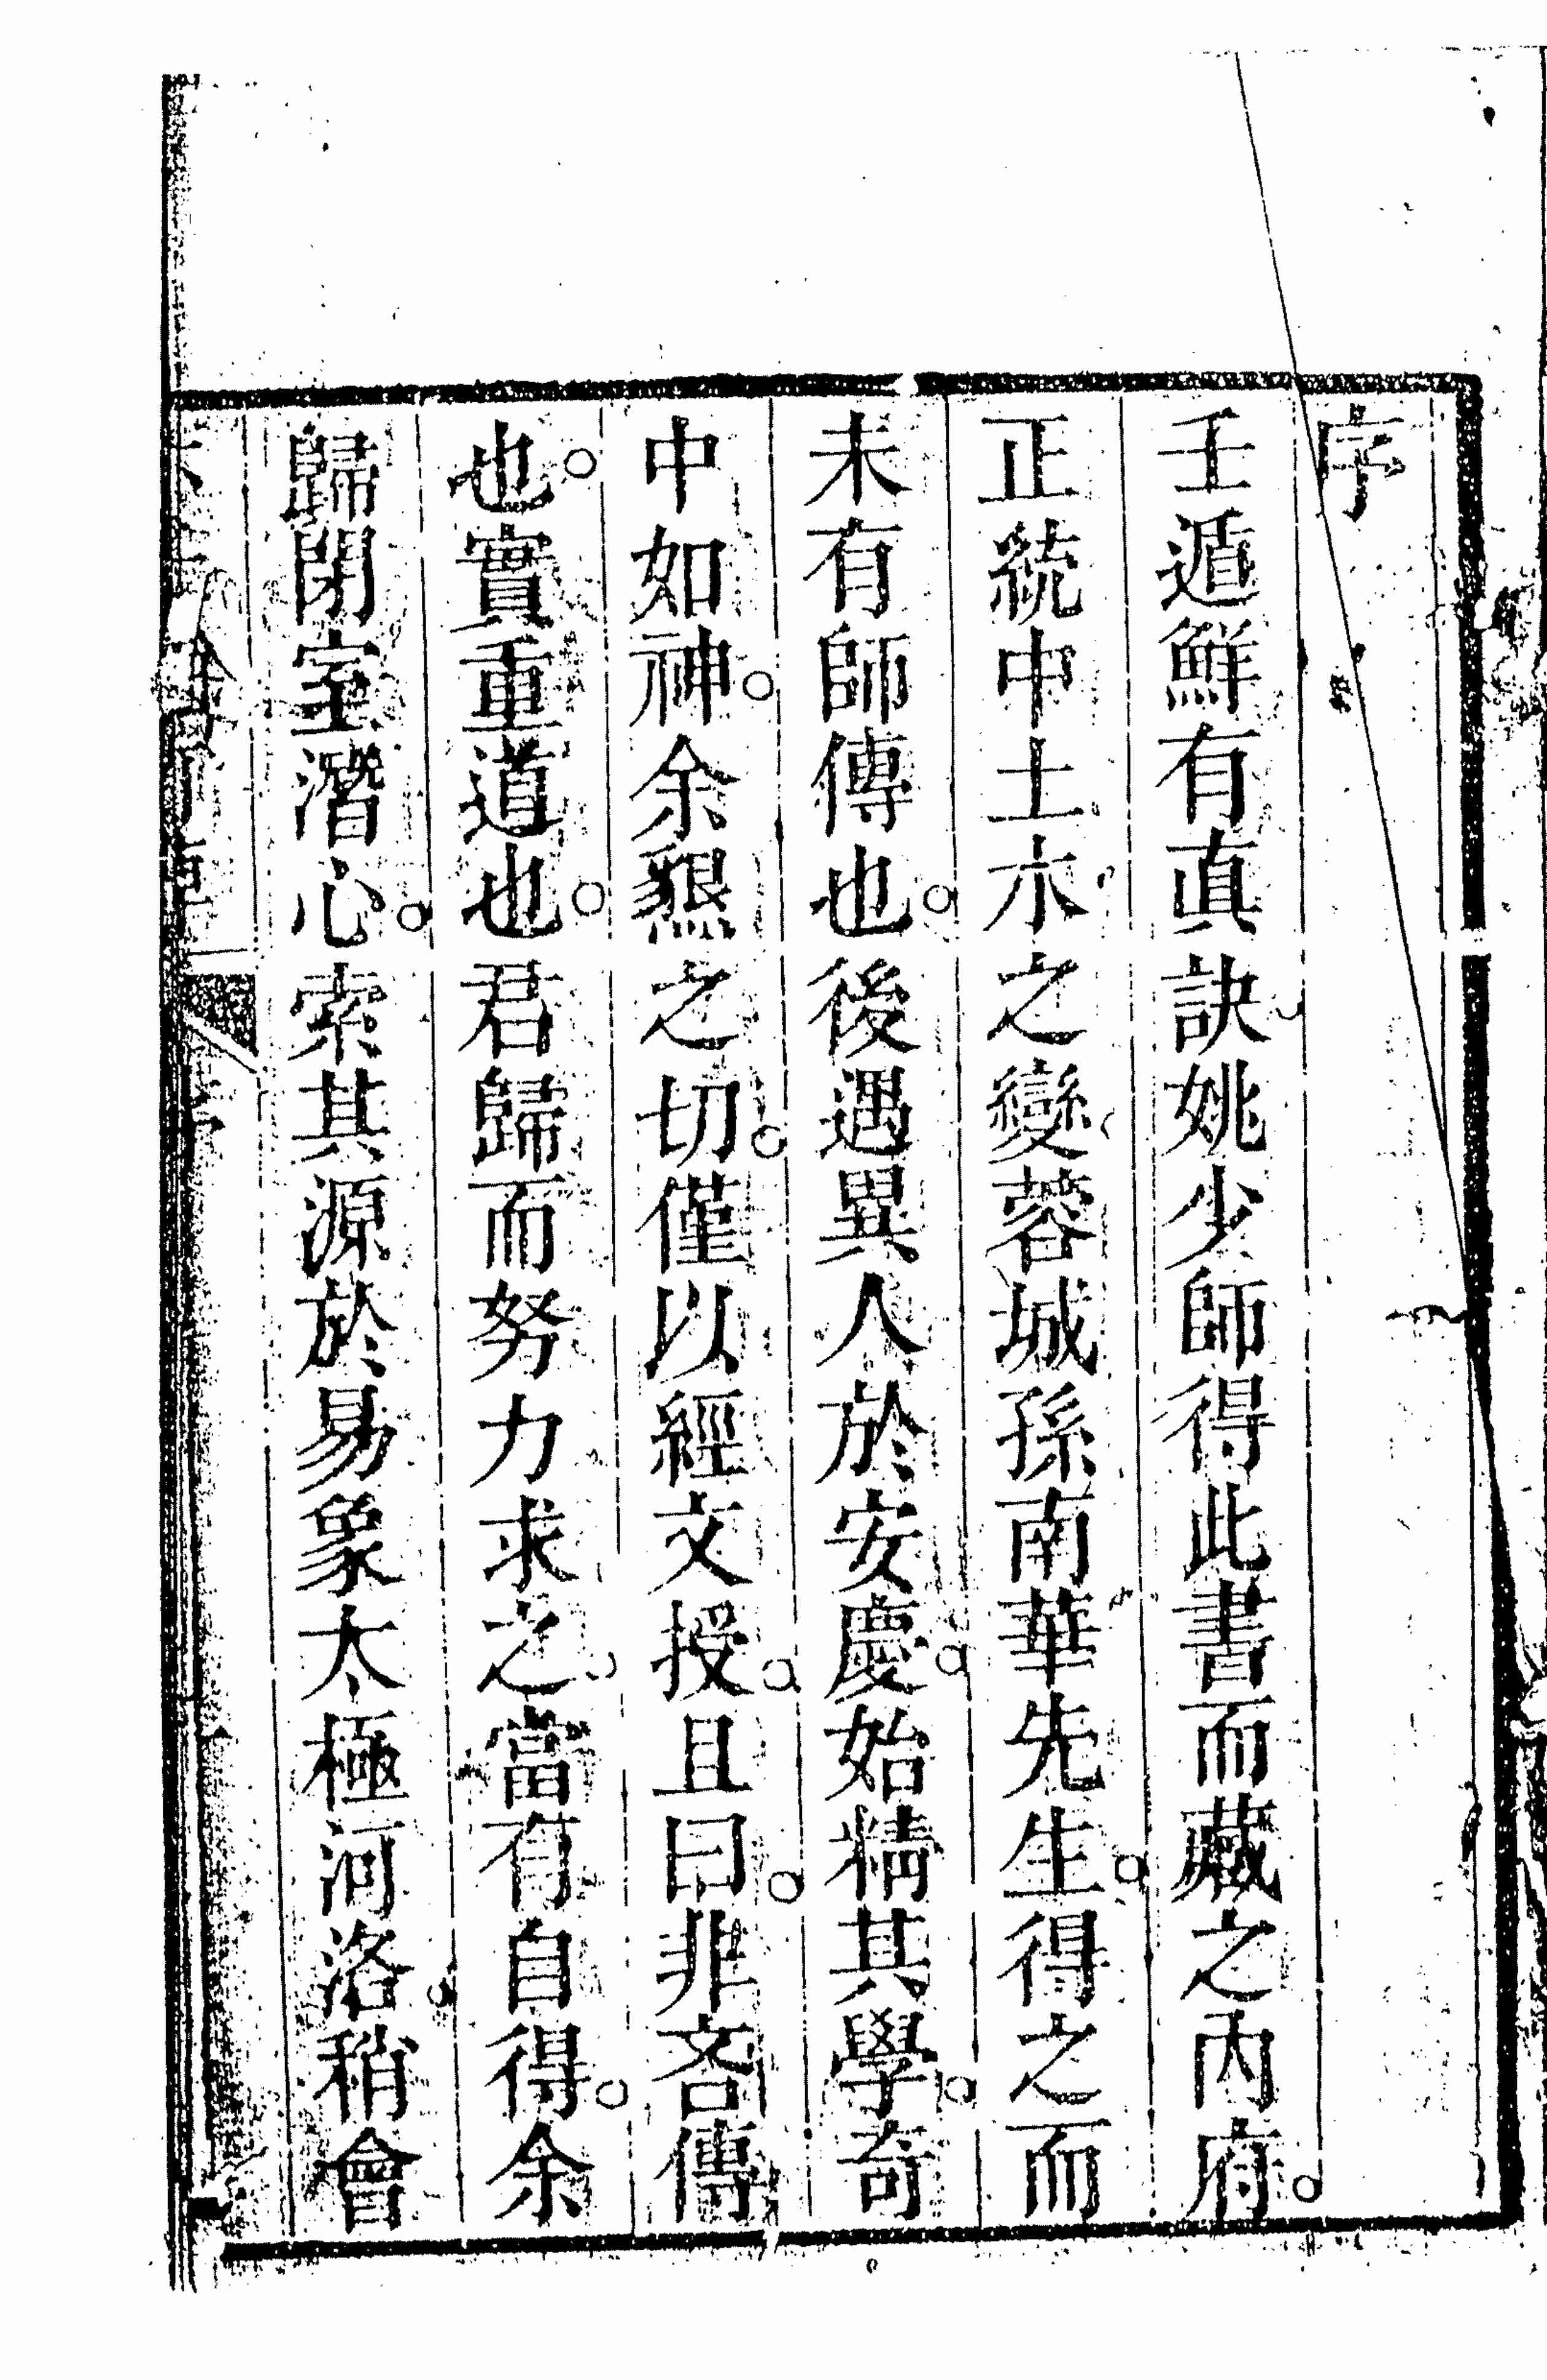 序
壬遁鮮有真訣姚少師得此書而藏之內府。
正統中土木之變蓉城孫南華先生。得之而
未有師傳也。後遇異人於安慶。始精其學。奇
中如神。余懇之切。僅以經文授。且曰。非吝傳
也。實重道也。君歸而努力求之。當有自得。余
歸閉室潛心。索其源於易象太極河洛。稍會